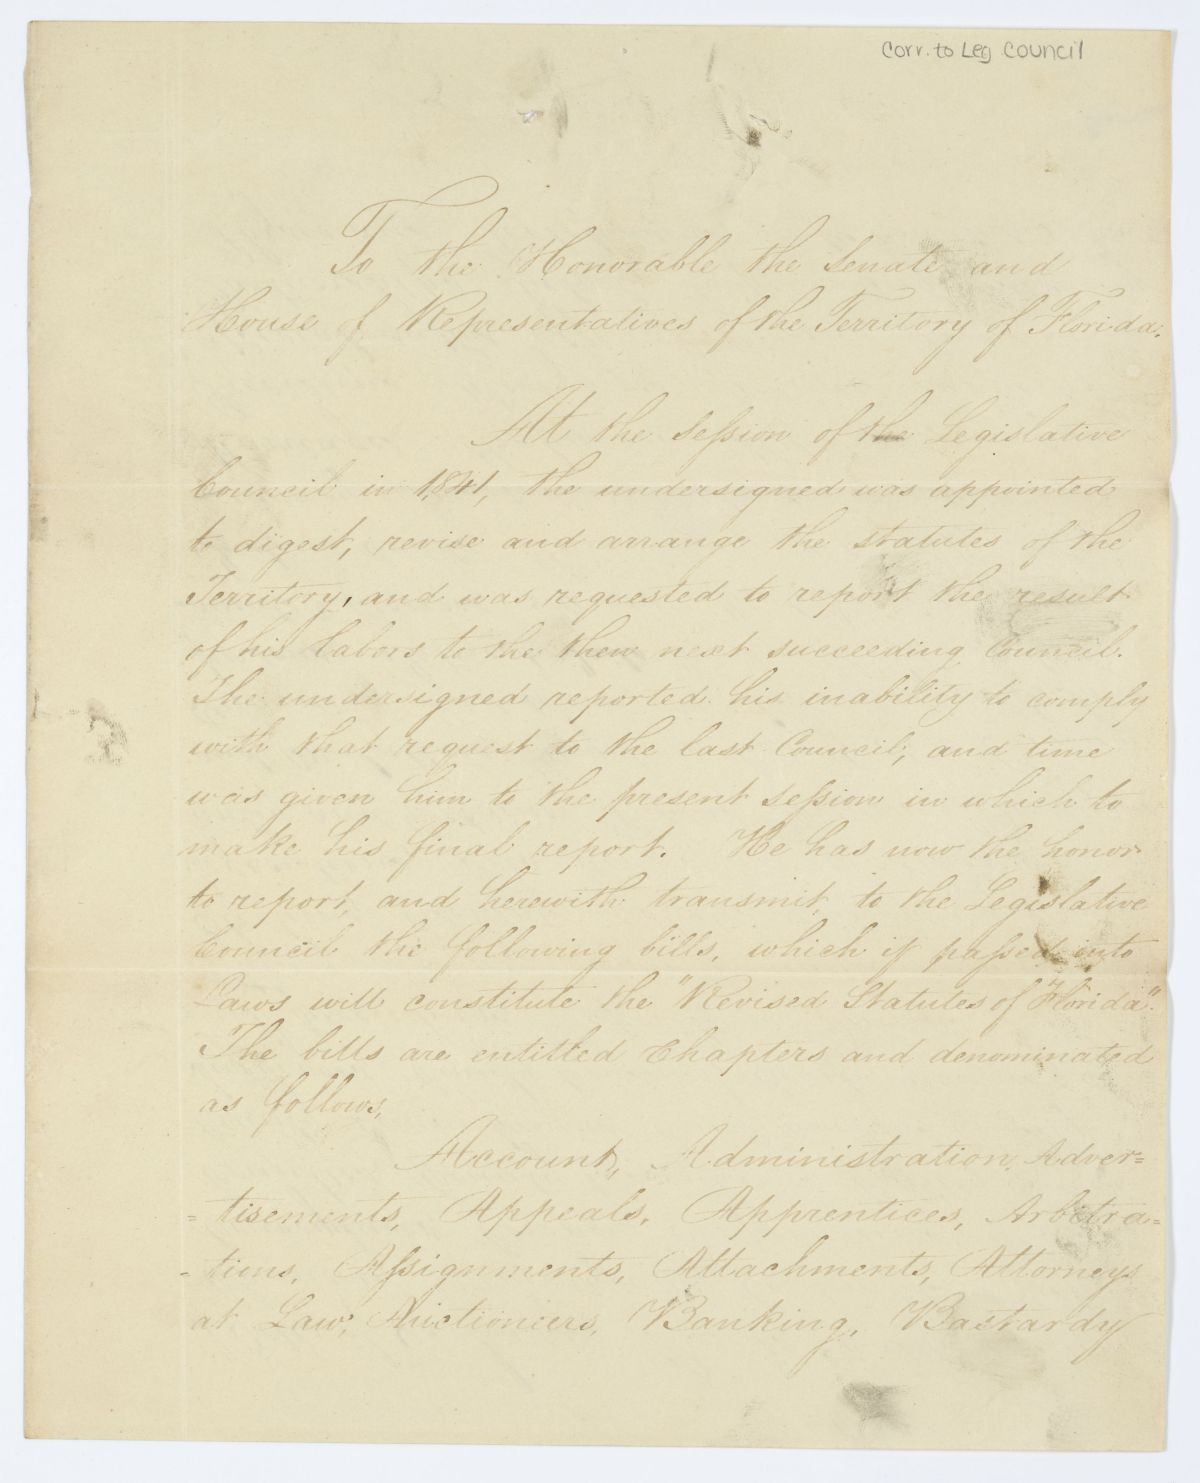 Corr. to Leg Council
To the Honorable the Senate and
House of Representatives of the Territory of Florida.
At the session of the Legislative
Council in 1841, the undersigned was appointed
to digest, revise and arrange the statutes of the
Territory, and was requested to report the result
of his labors to the then next succeeding Council.
The undersigned reported his inability to comply
with that request to the last Council; and time
was given him to the present session in which to
make his final report. He has now the honor
to report, and herewith transmit, to the Legislative
Council the following bills, which if passed into
Laws will constitute the "Revised Statutes of Florida".
The bills are entitled Chapters and denominated
as follows,
Account, Administration, Adver=
=tisements, Appeals, Apprentices, Arbitra=
=tions, Assignments, Attachments, Attorneys
at Law, Auctioneers, Banking, Bastardy